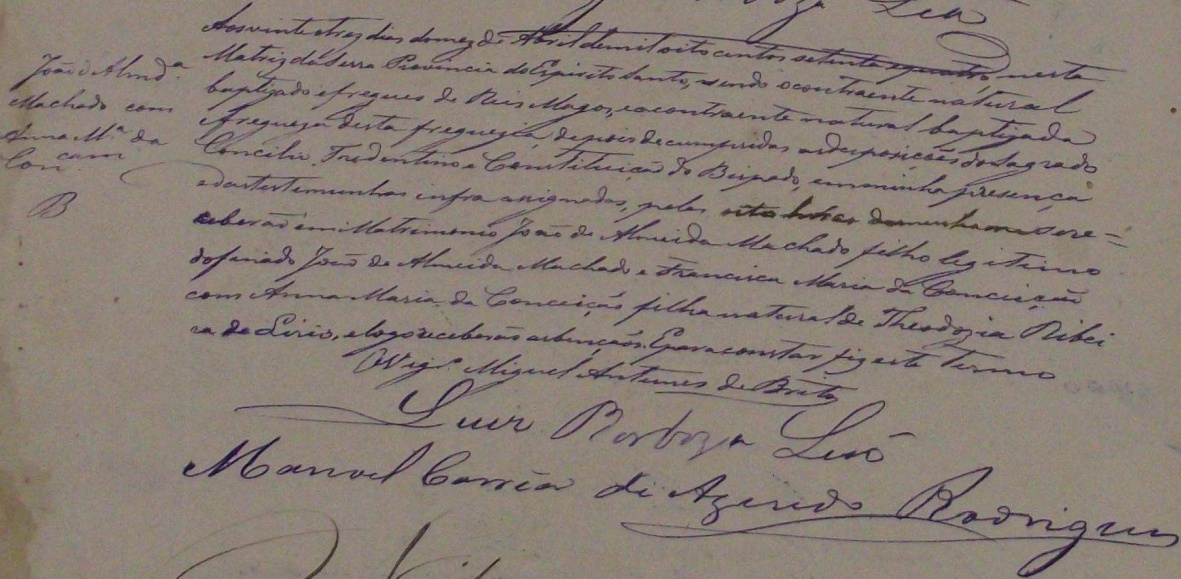 Barboza Leão
João d'Almd.ª
Machado com
Anna M.ª da
Con.cam
B
Aos vinte e trez dias do mez de Abril de mil oito centos setenta e quatro, nesta
Matriz da Serra Provincia do Espirito Santo, sendo o contraente natural
baptizado e freguez de Reis Magos, e a contraente natural baptizada
fregueza desta freguezia, depois de cumpridas as disposições do Sagrado
Concilio Tredentino e Constituição do Bispado, em minha presença
e das testemunhas infra asignadas, pelas oito horas da manhã se re=
ceberão em Matrimonio João de Almeida Machado filho legitimo
do finado João de Almeida Machado e Francisca Maria da Conceição
com Anna Maria da Conceição filha natural de Theodozia Ribei
ra do Lirio, e logo receberão as bençãos. E para constar fiz este termo
O Vig.º Miguel Antunes de Brito
Luiz Barboza Leão
Manoel Corrêa de Azeredo Rodrigues